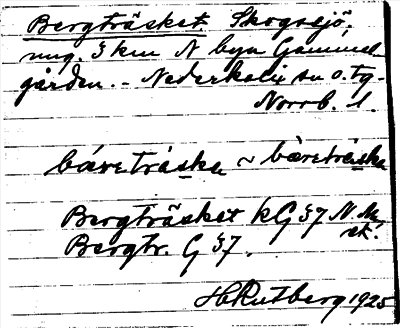 Bergträsket. Skogssjö,
ung. 3 km N byn Gammel-
gården. - Nederkalix sn o. tg.
Norrb. l.
båretráska ~ bæretræska
Bergträsket kG 37 N. M.
Bergtr. G 37.
H Rutberg 1925